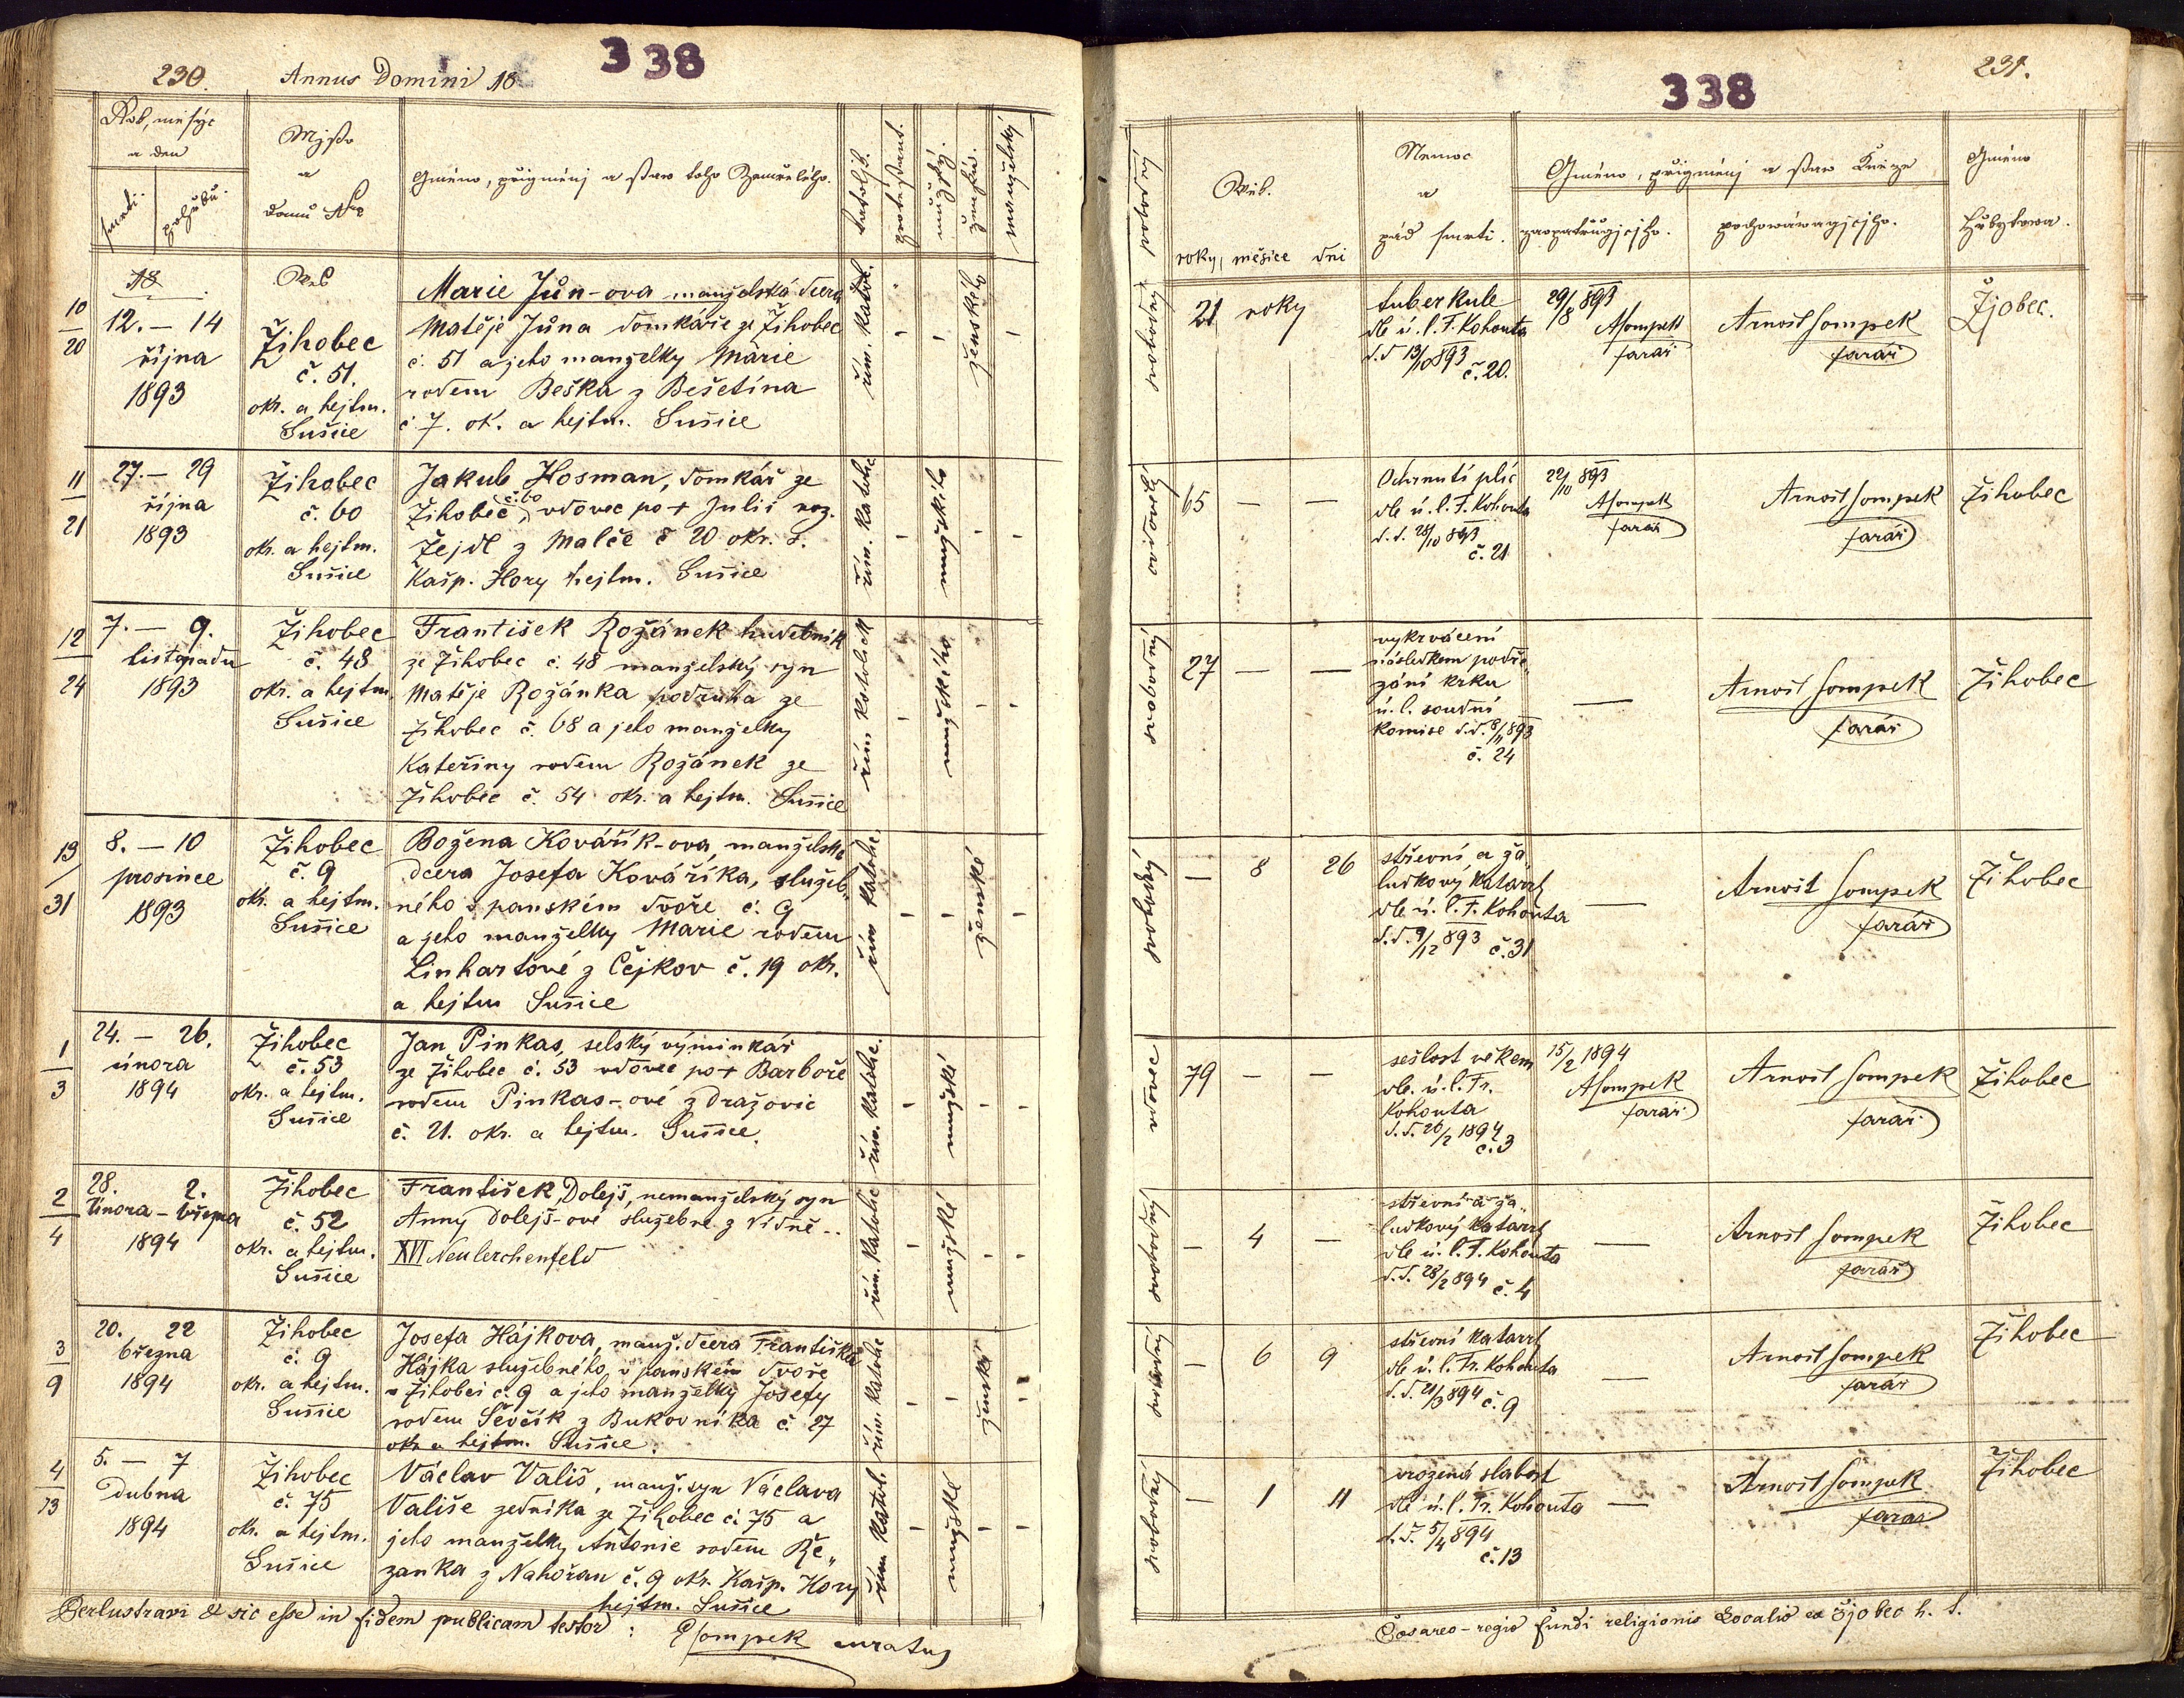 230.
Annus Domini 18
338
Rok, měsýc
a den
smrti.
pohřbu.
Mjsto
a
domu Nro
Gméno, přigménj a staw toho Zemřelého.
katoljk.
protestant.
mužský.
ženská.
manželský
10
20
18
12. – 14
října
1893
Wes
Žihobec
č. 51.
okr. a hejtm.
Sušice
Marie Jůn-ova manželská dcera
Matěje Jůna domkáře ze Žihobec
č. 51 a jeho manželky Marie
rodem Beška z Bešetína
č. 7. ok. a hejtm. Sušice
řím. katol.
-
-
ženského
-
11
21
27. – 29
října
1893
Žihobec
č. 60
okr. a hejtm.
Sušice
Jakub Hosman, domkář ze
Žihobec č. 60, vdovec po + Julii roz.
Žejdl z Malče č 20 okr. S.
Kašp. Hory hejtm. Sušice
řím. katolic
-
mužského
-
-
12
24
7. – 9.
listopadu
1893
Žihobec
č. 48
okr. a hejtm.
Sušice
František Rožánek hudebník
ze Žihobec č. 48 manželský syn
Matěje Rožánka podruha ze
Žihobec č. 68 a jeho manželky
Kateřiny rodem Rožánek ze
Žihobec č. 54 okr. a hejtm. Sušice
řím katolick
-
mužského
-
-
13
31
8. – 10
prosince
1893
Žihobec
č. 9
okr. a hejtm.
Sušice
Božena Kovářík-ova manželská
dcera Josefa Kováříka, služeb„
ného v panském dvoře č. 9
a jeho manželky Marie rodem
Linhartové z Čejkov č. 19 okr.
a hejtm Sušice
řím katolic.
-
-
ženské
-
1
3
24. – 26.
února
1894
Žihobec
č. 53
okr. a hejtm.
Sušice
Jan Pinkas, selský výminkář
ze Žihobec č. 53 vdovec po + Barboře
rodem Pinkas-ové z Dražovic
č. 21. okr. a hejtm. Sušice.
řím. katolic.
-
mužské
-
-
2
4
28. 2.
Února – března
1894
Žihobec
č. 52
okr. a hejtm.
Sušice
František Dolejš, nemanželský syn
Anny Dolejš-ové služebné z Vídně..
XVI Neulerchenfeld
řím. katolic
-
mužské
-
-
3
9
20. 22
března
1894
Žihobec
č. 9
okr. a hejtm.
Sušice
Josefa Hájkova, manž. dcera Františka
Hájka služebného v panském dvoře
v Žihobci č. 9 a jeho manželky Josefy
rodem Ševčík z Bukovníka č. 27
okr. a hejtm. Sušice.
řím. katolic
-
-
ženské
-
4
13
5. – 7
Dubna
1894
Žihobec
č. 75
okr. a hejtm.
Sušice
Václav Vališ, manž. syn Václava
Vališe zedníka ze Žihobec č. 75 a
jeho manželky Antonie rodem Ře„
zanka z Nahořan č. 9 okr. Kašp. Hory
hejtm. Sušice
řím katol.
-
mužské
-
-
Perlustravi & sic esse in fidem publicam testor: ASompek curatus
338
231.
swobodný
Wěk.
roky, měsíce dni
Nemoc
a
pád smrti.
Gméno, přigménj a staw Kněze
zaopatřugjcjho.
pochowáwagjcjho.
Gméno
Hřbytowa.
svobodný
21 roky
tuberkule
dle ú. l. F. Kohouta
d. d 13/10 893
č. 20.
29/8 893
ASompek
farář
Arnošt Sompek
farář
Žjobec.
ovdovělý
65 – –
Ochrnutí plic
dle ú. l. F. Kohouta
d. d. 28/10 893
č. 21
22/10 893
ASompek
farář
Arnošt Sompek
farář
Žihobec
svobodný
27 – –
vykrvácení
následkem podře„
zání krku
ú. l. soudní
komise d. d. 8/11 893
č. 24
—
Arnošt Sompek
farář
Žihobec
svobodný
– 8 26
střevní a ža„
ludkový katarrh
dle ú. l. F. Kohouta
d. d. 9/12 893 č. 31
—
Arnošt Sompek
farář
Žihobec
vdovec
79 – –
sešlost věkem
dle. ú. l. Fr.
Kohouta
d. d. 26/2 1894
č. 3
15/2 1894
ASompek
farář
Arnošt Sompek
farář
Žihobec
svobodný
– 4 –
střevní a ža„
ludkový katarrh
dle ú. l. F. Kohouta
d. d. 28/2 894 č. 4
—
Arnošt Sompek
farář
Žihobec
svobodný
– 6 9
střevní katarrh
dle ú. l. Fr. Kohouta
d. d. 21/3 894 č. 9
—
Arnošt Sompek
farář
Žihobec
svobodný
– 1 11
vrozená slabost
dle ú. l. Fr. Kohouta
d. d. 5/4 894
č. 13
—
Arnošt Sompek
farář
Žihobec
Cæsareo-regio fundi religionis Localis ex Žjobec h. t.